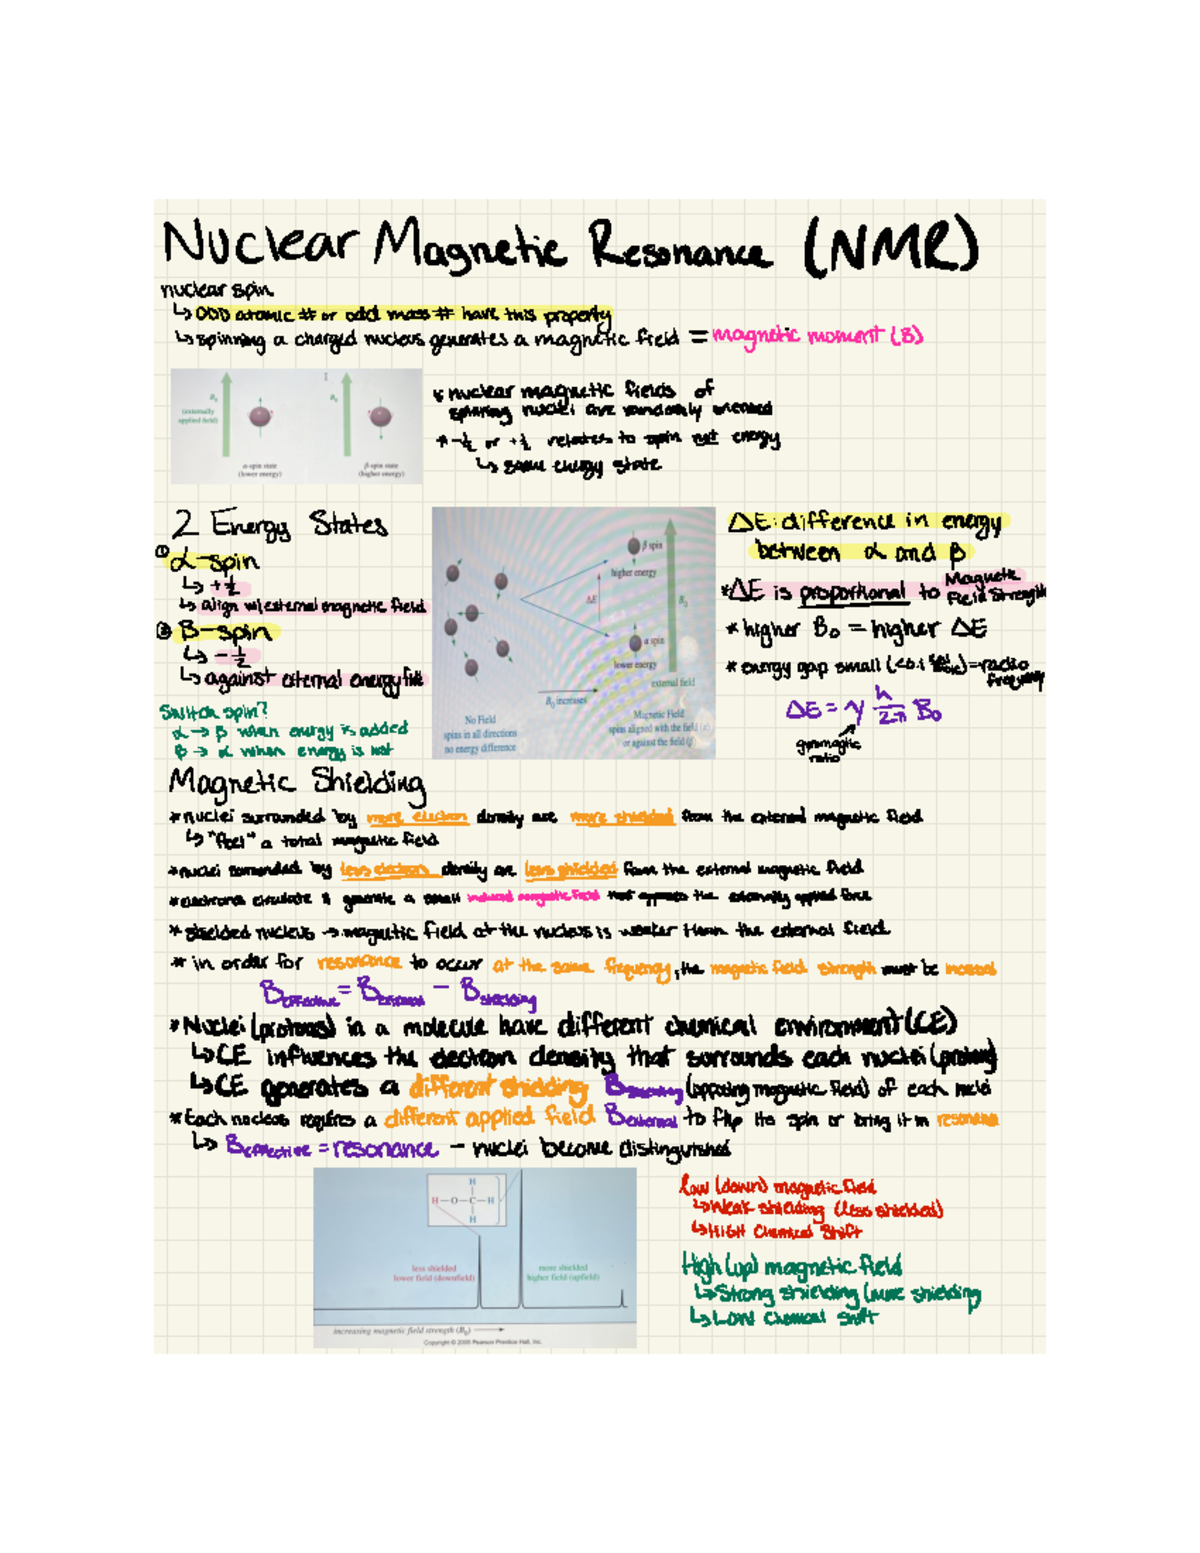 Nuclear Magnetic Resonance (NMR)
nuclear spin
↳ ODD atomic # or odd mass # have this property
↳ spinning a charged nucleus generates a magnetic field = magnetic moment (B)
B₀
(externally
applied field)
α-spin state
(lower energy)
B₀
β-spin state
(higher energy)
* nuclear magnetic fields of
spinning nuclei are randomly oriented
* -½ or +½ relates to spin not energy
↳ same energy state
2 Energy States
① α-spin
↳ +½
↳ align w/external magnetic field
② B-spin
↳ -½
↳ against external energy
Switch spin?
α → β when energy is added
β → α when energy is not
β spin
higher energy
ΔE
B₀
α spin
lower energy
external field
B₀ increases
No Field
spins in all directions
no energy difference
Magnetic Field
spins aligned with the field (α)
or against the field (β)
ΔE: difference in energy
between α and β
*ΔE is proportional to Magnetic
Field Strength
* higher B₀ = higher ΔE
* energy gap small (<0.1 ) = radio
frequency
ΔE = γ h/2π B₀
gyromagnetic
ratio
Magnetic Shielding
* nuclei surrounded by more electron density are more shielded from the external magnetic field
↳ "feel" a total magnetic field
* nuclei surrounded by less electron density are less shielded from the external magnetic field
* electrons circulate & generate a small induced magnetic field that opposes the externally applied force
* shielded nucleus → magnetic field at the nucleus is weaker than the external field
* in order for resonance to occur at the same frequency, the magnetic field strength must be increased
Beffective = Bexternal - Bshielding
* Nuclei (protons) in a molecule have different chemical environment (CE)
↳ CE influences the electron density that surrounds each nuclei (proton)
↳ CE generates a different shielding Bshielding (opposing magnetic field) of each nuclei
* Each nucleus requires a different applied field Bexternal to flip its spin or bring it in resonance
↳ Beffective = resonance - nuclei become distinguished
H
H—O—C—H
H
less shielded
lower field (downfield)
more shielded
higher field (upfield)
increasing magnetic field strength (B₀)
Copyright © 2005 Pearson Prentice Hall, Inc.
low (down) magnetic field
↳ Weak shielding (less shielded)
↳ HIGH Chemical Shift
High (up) magnetic field
↳ Strong shielding (more shielding
↳ LOW chemical shift